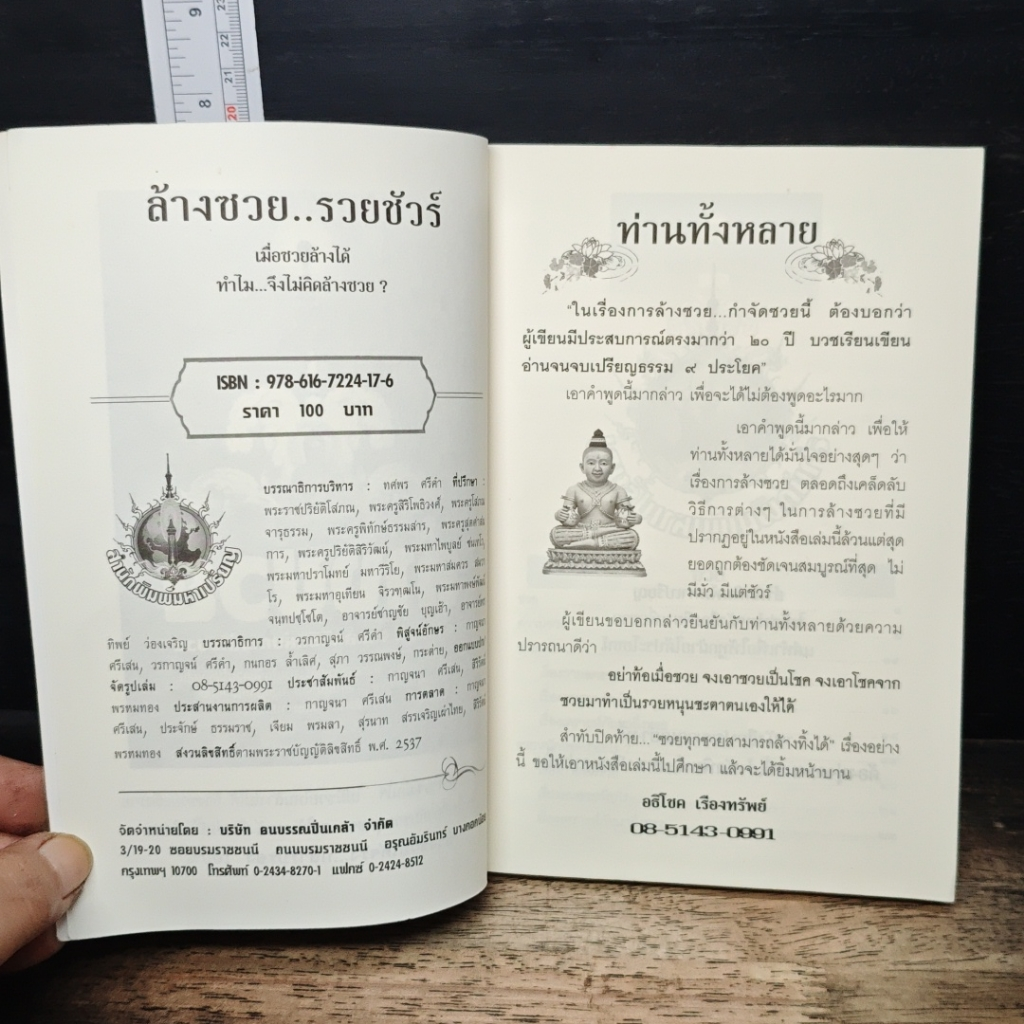 9
23
22
21
8
20
ล้างซวย..รวยชัวร์
เมื่อซวยล้างได้
ทำไม...จึงไม่คิดล้างซวย ?
ISBN : 978-616-7224-17-6
ราคา 100 บาท
สำนักพิมพ์มหาเปรียญ
บรรณาธิการบริหาร : ทศพร ศรีคำ ที่ปรึกษา :
พระราชปริยัติโสภณ, พระครูสิริโพธิวงศ์, พระครูโสภณ
จารุธรรม, พระครูพิทักษ์ธรรมสาร, พระครูสุตค่าสม
การ, พระครูปริยัติสิริวัฒน์, พระมหาไพบูลย์
พระมหาปราโมทย์ มหาวิริโย, พระมหาสมควร
โร, พระมหาอุเทียน จิรวฑฺฒโน, พระมหาพงษ์พัฒน์
จนฺทปชฺโชโต, อาจารย์ชาญชัย บุญเฮ้า,
ทิพย์ ว่องเจริญ บรรณาธิการ : วรกาญจน์ ศรีคำ พิสูจน์อักษร : กาญจนา
ศรีเสน, วรกาญจน์ ศรีคำ, กนกอร ล้ำเลิศ, สุภา วรรณพงษ์, กระต่าย,
จัดรูปเล่ม : 08-5143-0991 ประชาสัมพันธ์ : กาญจนา ศรีเสน,
พรหมทอง ประสานงานการผลิต : กาญจนา ศรีเสน การตลาด : กาญจนา
ศรีเสน, ประจักษ์ ธรรมราช, เจียม พรมลา, สุรนาท สรรเจริญเผ่าไทย,
พรหมทอง สงวนลิขสิทธิ์ตามพระราชบัญญัติลิขสิทธิ์ พ.ศ. 2537
จัดจำหน่ายโดย : บริษัท ธนบรรณปิ่นเกล้า จำกัด
3/19-20 ซอยบรมราชชนนี ถนนบรมราชชนนี อรุณอัมรินทร์ บางกอกน้อย
กรุงเทพฯ 10700 โทรศัพท์ 0-2434-8270-1 แฟกซ์ 0-2424-8512
ท่านทั้งหลาย
"ในเรื่องการล้างซวย...กำจัดซวยนี้ ต้องบอกว่า
ผู้เขียนมีประสบการณ์ตรงมากว่า ๒๐ ปี บวชเรียนเขียน
อ่านจนจบเปรียญธรรม ๙ ประโยค"
เอาคำพูดนี้มากล่าว เพื่อจะได้ไม่ต้องพูดอะไรมาก
เอาคำพูดนี้มากล่าว เพื่อให้
ท่านทั้งหลายได้มั่นใจอย่างสุดๆ ว่า
เรื่องการล้างซวย ตลอดถึงเคล็ดลับ
วิธีการต่างๆ ในการล้างซวยที่มี
ปรากฏอยู่ในหนังสือเล่มนี้ล้วนแต่สุด
ยอดถูกต้องชัดเจนสมบูรณ์ที่สุด ไม่
มีมั่ว มีแต่ชัวร์
ผู้เขียนขอบอกกล่าวยืนยันกับท่านทั้งหลายด้วยความ
ปรารถนาดีว่า
อย่าท้อเมื่อซวย จงเอาซวยเป็นโชค จงเอาโชคจาก
ซวยมาทำเป็นรวยหนุนชะตาตนเองให้ได้
สำทับปิดท้าย... "ซวยทุกซวยสามารถล้างทิ้งได้" เรื่องอย่าง
นี้ ขอให้เอาหนังสือเล่มนี้ไปศึกษา แล้วจะได้ยิ้มหน้าบาน
อธิโชค เรืองทรัพย์
08-5143-0991